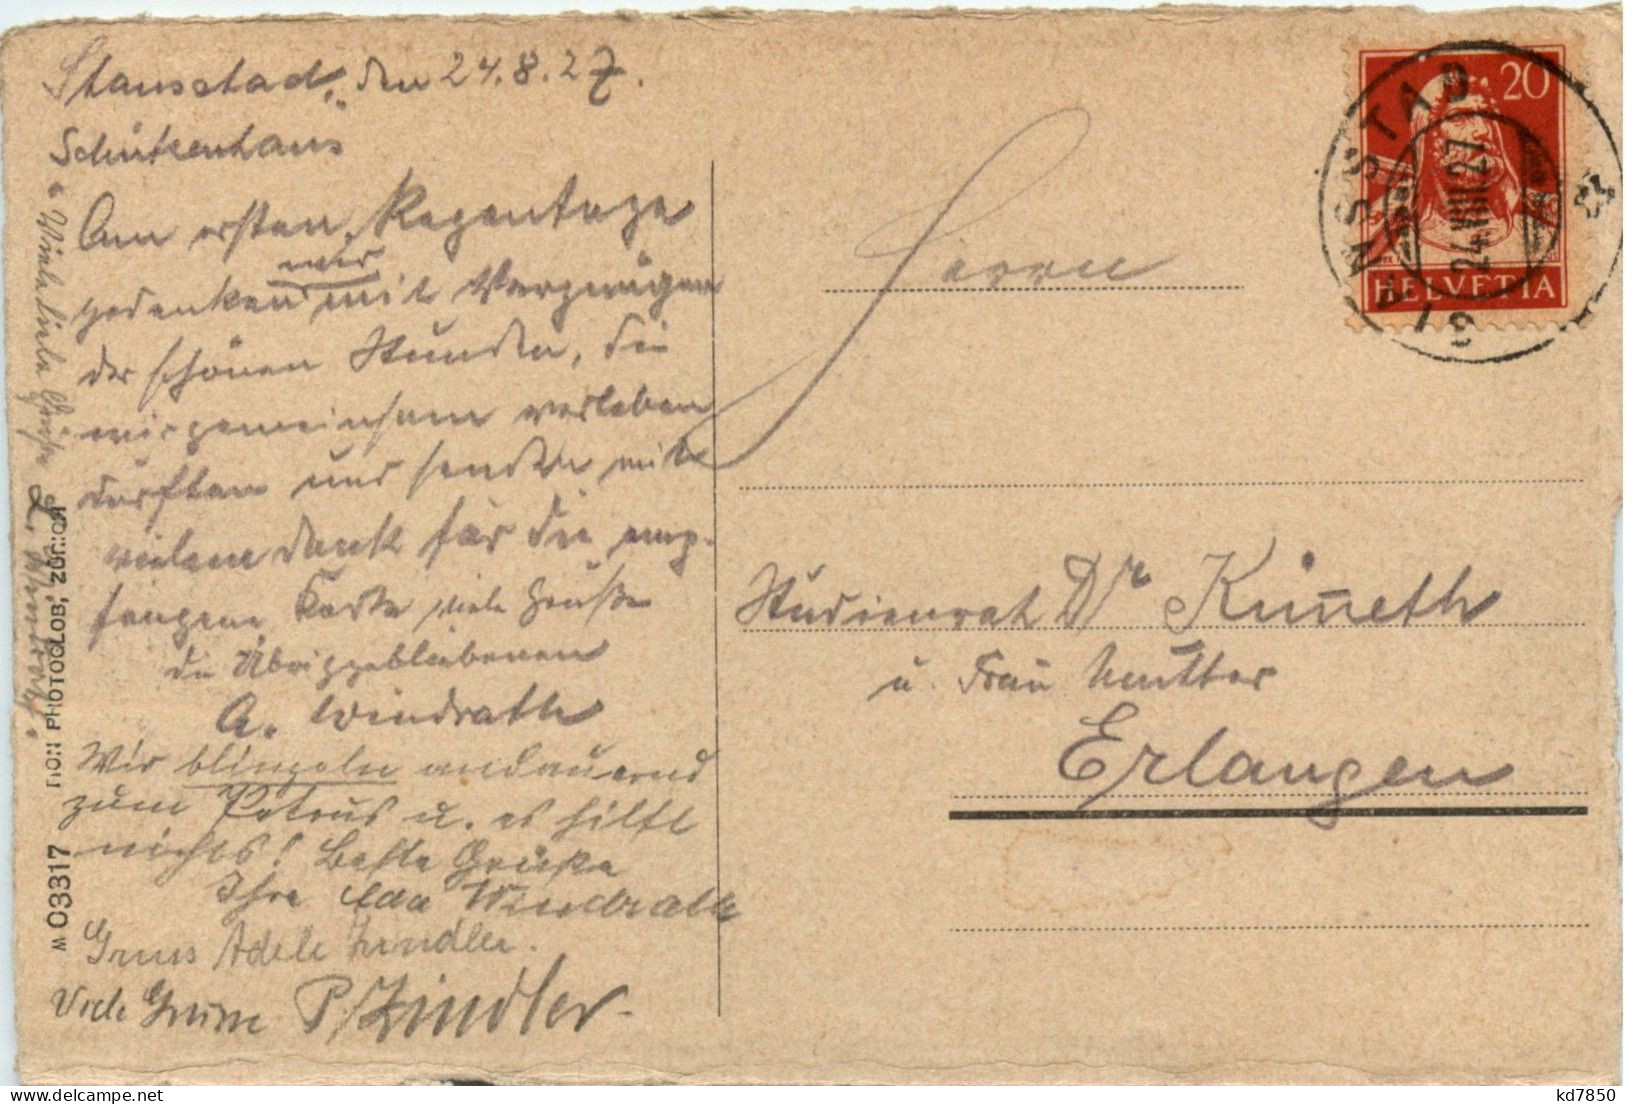 Stansstad, den 24.8.27.
Schützenhaus
Am ersten Regentage
gedenken wir mit Vergnügen
der schönen Stunden, die
wir gemeinsam verleben
durften und senden mit
vielem Dank für die emp-
fangene Karte viele Grüße
die Übriggebliebenen
A. Windrath
Wir blinzeln andauernd
zum Petrus u. es hilft
nichts! Beste Grüße
Ihre Eda Windrath
Gruss Adele Zindler.
Viele Grüsse P. Zindler.
Viele liebe Grüße L. Windrath.
W 03317 PHOTOGLOB, ZÜRICH
Herrn
Studienrat Dr Künneth
u. Frau Mutter
Erlangen
20
HELVETIA
STANSSTAD
24.VIII.27
kd7850